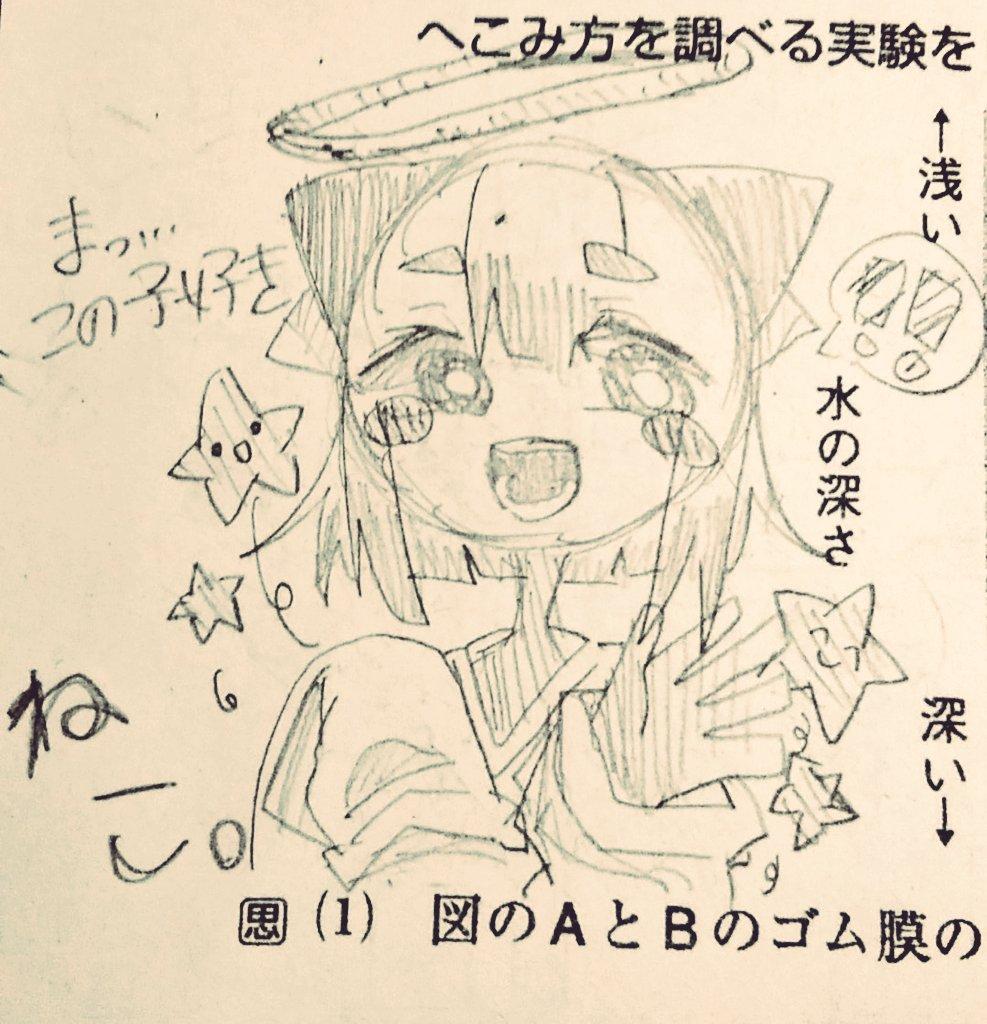 へこみ方を調べる実験を
↑浅い
水の深さ
深い↓
まっ…
この子好き
ねこ。
思 (1) 図のAとBのゴム膜の